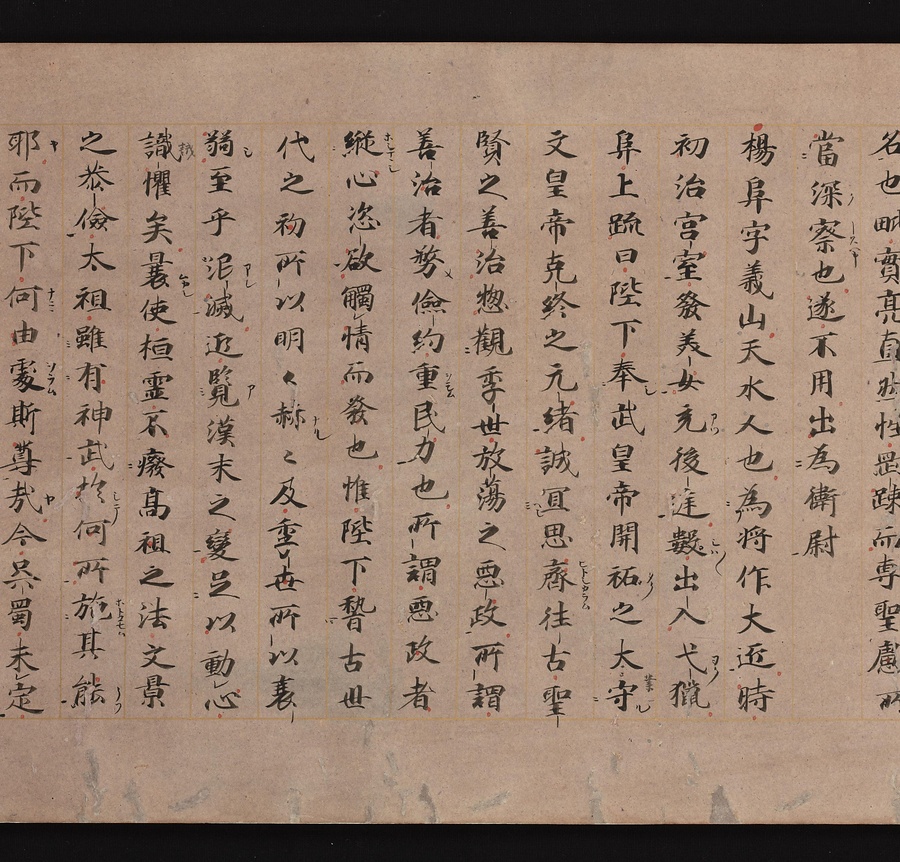 名也毗實亮直然性剛疎而専聖慮所
當深察也遂不用出為衛尉
楊阜字義山天水人也為将作大近時
初治宮室發美女充後逢數出入弋獵
阜上疏曰陛下奉武皇帝開祏之太守
文皇帝克終之元緒誠冝思齊往古聖
賢之善治惣觀季世放蕩之惡政所謂
善治者務儉約重民力也所謂惡政者
縦心恣欲觸情而發也惟陛下稽古世
代之初所以明〻赫〻及季世所以衰
弱至乎泯滅近覽漢末之變足以動心
識懼矣曩使桓靈不癈髙祖之法文景
之恭儉太祖雖有神武於何所施其能
耶而陛下何由處斯尊哉今吳蜀未定